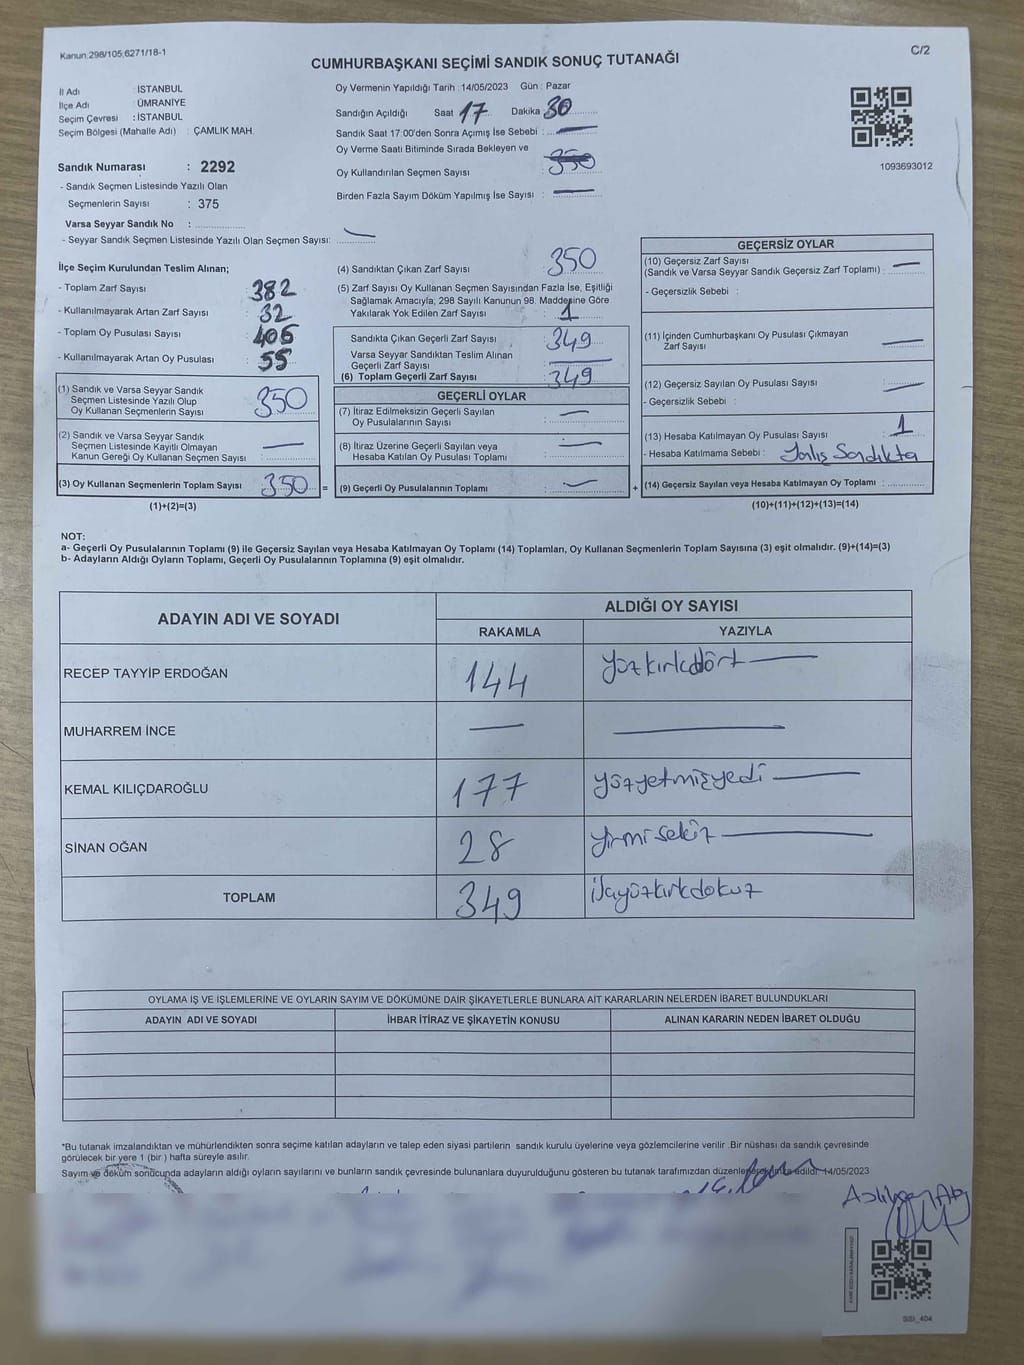 Kanun:298/105;6271/18-1
C/2
CUMHURBAŞKANI SEÇİMİ SANDIK SONUÇ TUTANAĞI
İl Adı : İSTANBUL
İlçe Adı : ÜMRANİYE
Seçim Çevresi : İSTANBUL
Seçim Bölgesi (Mahalle Adı) : ÇAMLIK MAH.
Sandık Numarası : 2292
- Sandık Seçmen Listesinde Yazılı Olan
Seçmenlerin Sayısı : 375
Varsa Seyyar Sandık No :
- Seyyar Sandık Seçmen Listesinde Yazılı Olan Seçmen Sayısı:
Oy Vermenin Yapıldığı Tarih : 14/05/2023 Gün : Pazar
Sandığın Açıldığı Saat 17 Dakika 30
Sandık Saat 17:00'den Sonra Açımış İse Sebebi :
Oy Verme Saati Bitiminde Sırada Bekleyen ve
Oy Kullandırılan Seçmen Sayısı 350
Birden Fazla Sayım Döküm Yapılmış İse Sayısı :
1093693012
İlçe Seçim Kurulundan Teslim Alınan;
- Toplam Zarf Sayısı : 382
- Kullanılmayarak Artan Zarf Sayısı : 32
- Toplam Oy Pusulası Sayısı : 406
- Kullanılmayarak Artan Oy Pusulası : 55
(1) Sandık ve Varsa Seyyar Sandık
Seçmen Listesinde Yazılı Olup
Oy Kullanan Seçmenlerin Sayısı : 350
(2) Sandık ve Varsa Seyyar Sandık
Seçmen Listesinde Kayıtlı Olmayan
Kanun Gereği Oy Kullanan Seçmen Sayısı :
(3) Oy Kullanan Seçmenlerin Toplam Sayısı : 350 =
(1)+(2)=(3)
(4) Sandıktan Çıkan Zarf Sayısı : 350
(5) Zarf Sayısı Oy Kullanan Seçmen Sayısından Fazla İse, Eşitliği
Sağlamak Amacıyla, 298 Sayılı Kanunun 98. Maddesine Göre
Yakılarak Yok Edilen Zarf Sayısı : 1
Sandıkta Çıkan Geçerli Zarf Sayısı : 349
Varsa Seyyar Sandıktan Teslim Alınan
Geçerli Zarf Sayısı :
(6) Toplam Geçerli Zarf Sayısı : 349
GEÇERLİ OYLAR
(7) İtiraz Edilmeksizin Geçerli Sayılan
Oy Pusulalarının Sayısı :
(8) İtiraz Üzerine Geçerli Sayılan veya
Hesaba Katılan Oy Pusulası Toplamı :
(9) Geçerli Oy Pusulalarının Toplamı : +
GEÇERSİZ OYLAR
(10) Geçersiz Zarf Sayısı
(Sandık ve Varsa Seyyar Sandık Geçersiz Zarf Toplamı) :
- Geçersizlik Sebebi :
(11) İçinden Cumhurbaşkanı Oy Pusulası Çıkmayan
Zarf Sayısı :
(12) Geçersiz Sayılan Oy Pusulası Sayısı :
- Geçersizlik Sebebi :
(13) Hesaba Katılmayan Oy Pusulası Sayısı : 1
- Hesaba Katılmama Sebebi : Yanlış Sandıkta
(14) Geçersiz Sayılan veya Hesaba Katılmayan Oy Toplamı :
(10)+(11)+(12)+(13)=(14)
NOT:
a- Geçerli Oy Pusulalarının Toplamı (9) ile Geçersiz Sayılan veya Hesaba Katılmayan Oy Toplamı (14) Toplamları, Oy Kullanan Seçmenlerin Toplam Sayısına (3) eşit olmalıdır. (9)+(14)=(3)
b- Adayların Aldığı Oyların Toplamı, Geçerli Oy Pusulalarının Toplamına (9) eşit olmalıdır.
ADAYIN ADI VE SOYADI
ALDIĞI OY SAYISI
RAKAMLA YAZIYLA
RECEP TAYYİP ERDOĞAN 144 yüzkırkdört
MUHARREM İNCE
KEMAL KILIÇDAROĞLU 177 yüzyetmişyedi
SİNAN OĞAN 28 yirmisekiz
TOPLAM 349 üçyüzkırkdokuz
OYLAMA İŞ VE İŞLEMLERİNE VE OYLARIN SAYIM VE DÖKÜMÜNE DAİR ŞİKAYETLERLE BUNLARA AİT KARARLARIN NELERDEN İBARET BULUNDUKLARI
ADAYIN ADI VE SOYADI İHBAR İTİRAZ VE ŞİKAYETİN KONUSU ALINAN KARARIN NEDEN İBARET OLDUĞU
*Bu tutanak imzalandıktan ve mühürlendikten sonra seçime katılan adayların ve talep eden siyasi partilerin sandık kurulu üyelerine veya gözlemcilerine verilir .Bir nüshası da sandık çevresinde
görülecek bir yere 1 (bir ) hafta süreyle asılır.
Sayım ve döküm sonucunda adayların aldığı oyların sayılarını ve bunların sandık çevresinde bulunanlara duyurulduğunu gösteren bu tutanak tarafımızdan düzenlenerek imza edildi. 14/05/2023
SSI_404